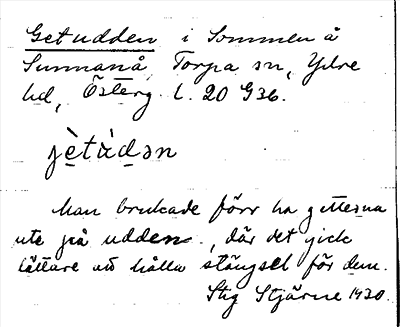 Getudden i Sommen å
Sunnanå, Torpa sn, Ydre
hd, Österg. l. 20 G36.
jètùdən
Man brukade förr ha getterna
ute på udden, där det gick
lättare att hålla stängsel för dem.
Stig Stjärne 1930.